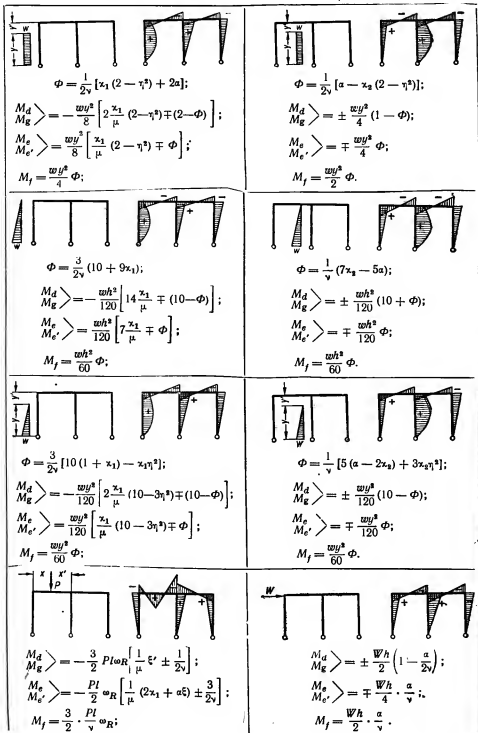 y
y
w
Φ = 1/2ν [ϰ₁ (2 − η²) + 2α];
M_d
M_g > = − wy²/8 [2 ϰ₁/μ (2−η²) ∓ (2−Φ)];
M_e
M_e' > = wy²/8 [ϰ₁/μ (2 − η²) ∓ Φ];
M_f = wy²/4 Φ;
y
y
w
Φ = 1/2ν [α − ϰ₂ (2 − η²)];
M_d
M_g > = ± wy²/4 (1 − Φ);
M_e
M_e' > = ∓ wy²/4 Φ;
M_f = wy²/2 Φ.
w
Φ = 3/2ν (10 + 9ϰ₁);
M_d
M_g > = − wh²/120 [14 ϰ₁/μ ∓ (10−Φ)];
M_e
M_e' > = wh²/120 [7 ϰ₁/μ ∓ Φ];
M_f = wh²/60 Φ;
w
Φ = 1/ν (7ϰ₂ − 5α);
M_d
M_g > = ± wh²/120 (10 + Φ);
M_e
M_e' > = ∓ wh²/120 Φ;
M_f = wh²/60 Φ.
y
y
w
Φ = 3/2ν [10 (1 + ϰ₁) − ϰ₁η²];
M_d
M_g > = − wy²/120 [2 ϰ₁/μ (10−3η²) ∓ (10−Φ)];
M_e
M_e' > = wy²/120 [ϰ₁/μ (10 − 3η²) ∓ Φ];
M_f = wy²/60 Φ;
y
y
w
Φ = 1/ν [5 (α − 2ϰ₂) + 3ϰ₂η²];
M_d
M_g > = ± wy²/120 (10 − Φ);
M_e
M_e' > = ∓ wy²/120 Φ;
M_f = wy²/60 Φ.
x x'
P
M_d
M_g > = − 3/2 Plω_R [1/μ ξ' ± 1/2ν];
M_e
M_e' > = − Pl/2 ω_R [1/μ (2ϰ₁ + αξ) ± 3/2ν];
M_f = 3/2 · Pl/ν ω_R;
W
M_d
M_g > = ± Wh/2 (1 − α/2ν);
M_e
M_e' > = ∓ Wh/4 · α/ν;
M_f = Wh/2 · α/ν.